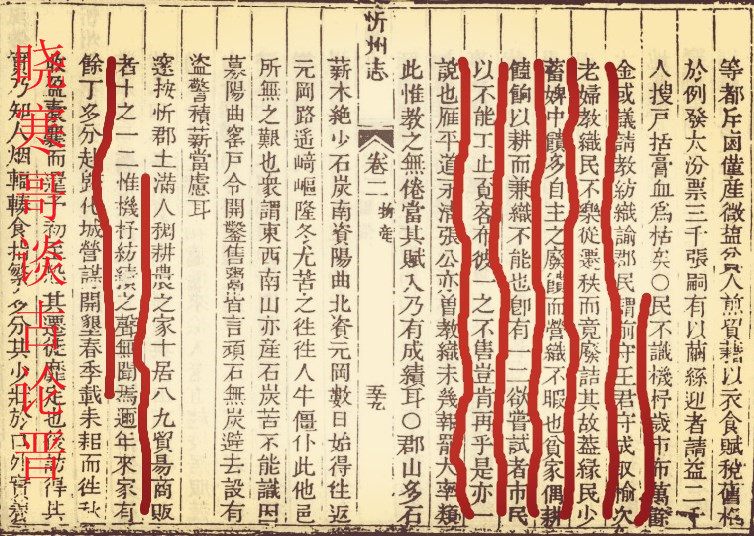 等都斥鹵僅產微鹽分
人煎貿藉以衣食賦稅舊
於例發太汾票三千張嗣有以繭絲迎者請益二千
人搜戶括膏血為枯矣○民不識機杼歲市布萬餘
金或議請教紡織諭郡民謂前守王君守成取榆次
老婦教織民不樂從遷秩而竟廢詰其故蓋緣民少
蓄婢中饋多自主之廢饋而營織不暇也貧家偶耕
饁餉以耕而兼織不能也卽有一二欲嘗試者市民
以不能工止負客布彼一之不售豈肯再乎是亦一
說也雁平道永清張公亦曾教織未幾報罷大率類
此惟教之無倦當其賦入乃有成績耳○郡山多石
忻州志
卷二
物產
薪木絶少石炭南資陽曲北資元岡數日始得往返
元岡路遥﨑嶇隆冬尤苦之徃徃人牛僵仆此他邑
所無之艱也衆謂東西南山亦産石炭苦不能識因
募陽曲窑戶令開鑿售鬻皆言頑石無炭避去設有
盜警積薪當慮耳
寔按忻郡土滿人稠耕農之家十居八九貿易商販
者十之一二惟機杼紡績之聲無聞焉邇年來家有
餘丁多分赴歸化城營謀開墾春季載耒耜而徃秋
曉寒哥谈古论晋